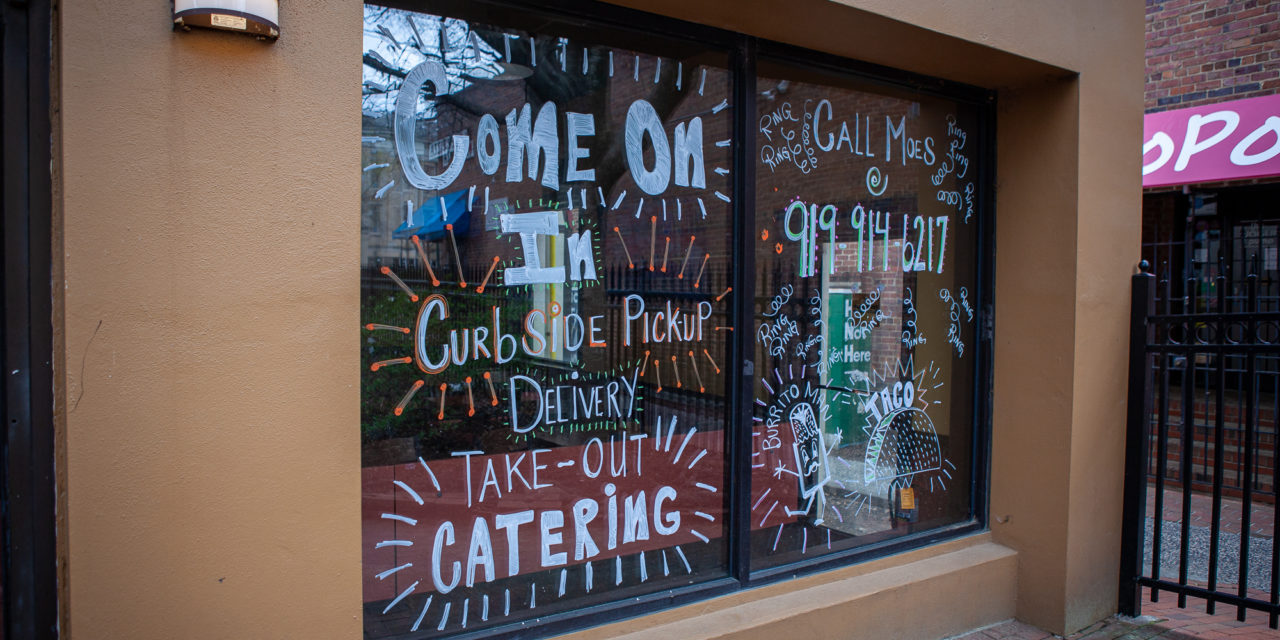 Come On
In
Curbside Pickup
Delivery
Take-Out
Catering
Ring
Ring
Call Moes
Ring
Ring
Ring
919 914 6217
Ring
Ring
Ring
Ring
Ring
Ring
Here
Burrito
Taco
OPO